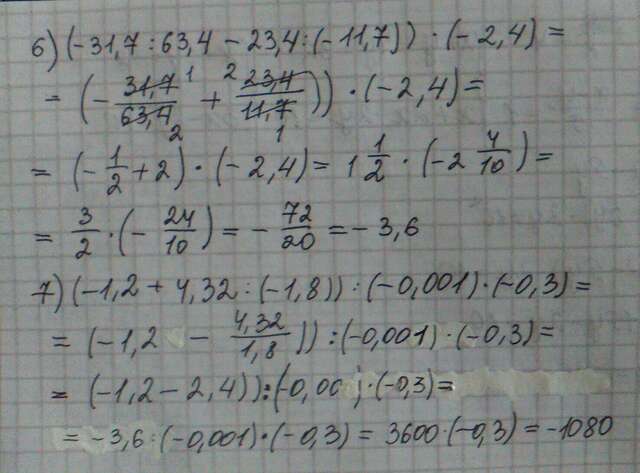 6) (-31,7 : 63,4 - 23,4 : (-11,7)) · (-2,4) =
= (- 31,7/63,4 1 2 + 2 23,4/11,7 1)) · (-2,4) =
= (- 1/2 + 2) · (-2,4) = 1 1/2 · (-2 4/10) =
= 3/2 · (- 24/10) = - 72/20 = -3,6
7) (-1,2 + 4,32 : (-1,8)) : (-0,001) · (-0,3) =
= (-1,2 - 4,32/1,8)) : (-0,001) · (-0,3) =
= (-1,2 - 2,4)) : (-0,00 ) · (-0,3) =
= -3,6 : (-0,001) · (-0,3) = 3600 · (-0,3) = -1080